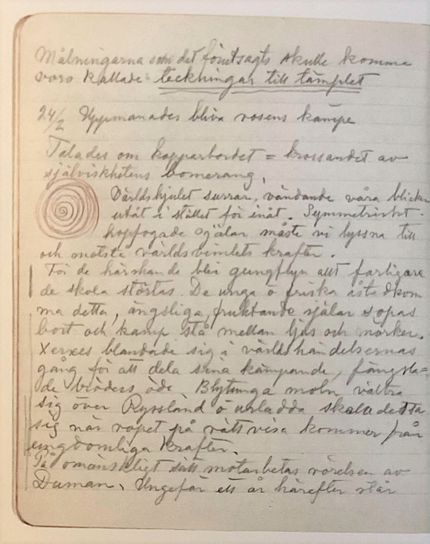 Målningarna som det förutsagts skulle komma
voro kallade teckningar till templet
24/2 Uppmanades bliva rosens kämpe
Talades om kopparbordet = krossandet av
självishetens bomerang.
Världshjulet surrar, vändande våra blickar
utåt i stället för inåt. Symmetriskt
hopfogade själar måste vi lyssna till
och motstå världsvimlets krafter.
För de härskande blir gungflyn allt farligare
de skola störtas. De unga o friska åstadkom
ma detta, ängsliga, fruktande själar sopas
bort och kamp stå mellan ljus och mörker.
Xerxes blandade sig i världshändelsernas
gång för att dela sina kämpande, fängsla-
de bröders öde. Blytunga moln vältra
sig över Ryssland o urladda skola detta
sig när ropet på rättvisa kommer från
ungdomliga krafter.
På omänskligt sätt motarbetas rörelsen av
Duman. Ungefär ett år härefter står